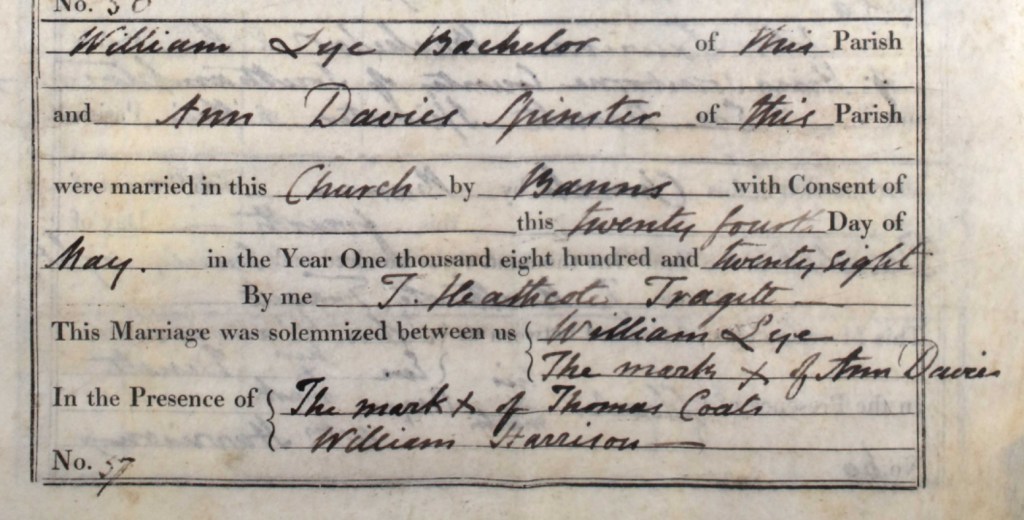 No. 56
William Lye Bachelor of this Parish
and Ann Davies Spinster of this Parish
were married in this Church by Banns with Consent of
this twenty fourth Day of
May. in the Year One thousand eight hundred and twenty eight
By me T. Heathcote Tragett
This Marriage was solemnized between us { William Lye
The mark x of Ann Davies
In the Presence of { The mark x of Thomas Coats
William Harrison
No. 57